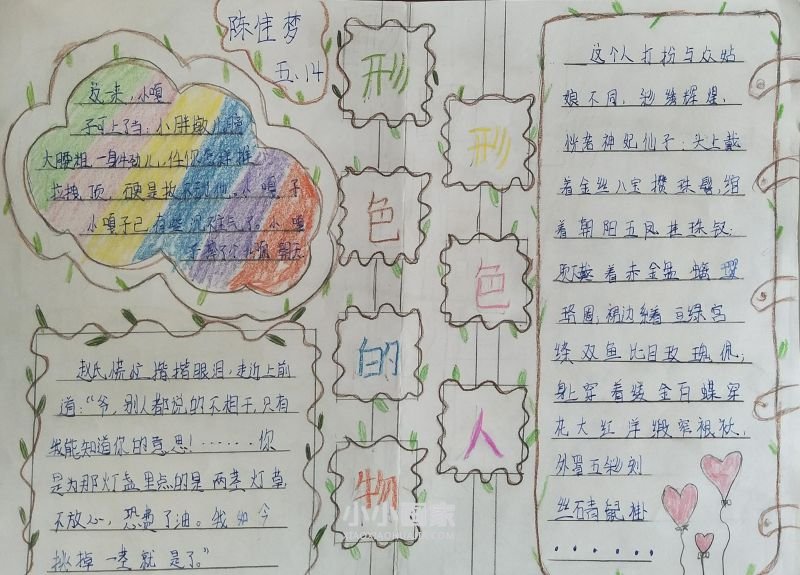 陈佳梦
五、14
形
形
色
色
的
人
物
起来,小嘎
子可上了当:小胖墩儿膀
大腰粗一身牛劲儿,任你怎样推
拉拽顶,硬是扳不动他。小嘎子
小嘎子已有些沉不住气了,小嘎
子摔了个仰面朝天。
赵氏慌忙揩揩眼泪,走近上前
道:“爷,别人都说的不相干,只有
我能知道你的意思!……你
是为那灯盏里点的是两茎灯草
不放心,恐费了油。我如今
挑掉一茎就是了。”
这个人打扮与众姑
娘不同,彩绣辉煌,
恍若神妃仙子:头上戴
着金丝八宝攒珠髻,绾
着朝阳五凤挂珠钗;
项戴着赤金盘螭璎
珞圈;裙边系着豆绿宫
绦双鱼比目玫瑰佩;
身上穿着缕金百蝶穿
花大红洋缎窄裉袄,
外罩五彩刻
丝石青银褂
......
小小画家